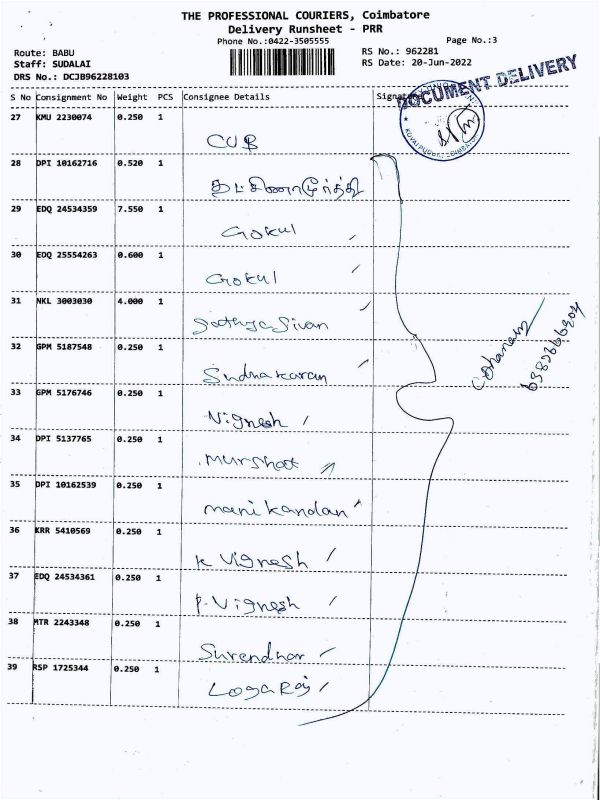 THE PROFESSIONAL COURIERS, Coimbatore
Delivery Runsheet - PRR
Phone No.:0422-3505555
Page No.:3
Route: BABU
RS No.: 962281
Staff: SUDALAI
RS Date: 20-Jun-2022
DRS No.: DCJB96228103
DOCUMENT DELIVERY
S No Consignment No Weight PCS Consignee Details Signature
27 KMU 2230074 0.250 1
CUB
28 DPI 10162716 0.520 1
தட்சிணாமூர்த்தி
29 EDQ 24534359 7.550 1
Gokul
30 EDQ 25554263 0.600 1
Gokul
31 NKL 3003030 4.000 1
Sathya Sivan
32 GPM 5187548 0.250 1
Sudhakaran
33 GPM 5176746 0.250 1
Vignesh
34 DPI 5137765 0.250 1
35 DPI 10162539 0.250 1
manikandan
36 KRR 5410569 0.250 1
K Vignesh
37 EDQ 24534361 0.250 1
P. Vignesh
38 MTR 2243348 0.250 1
Surendhar
39 RSP 1725344 0.250 1
Logaraj